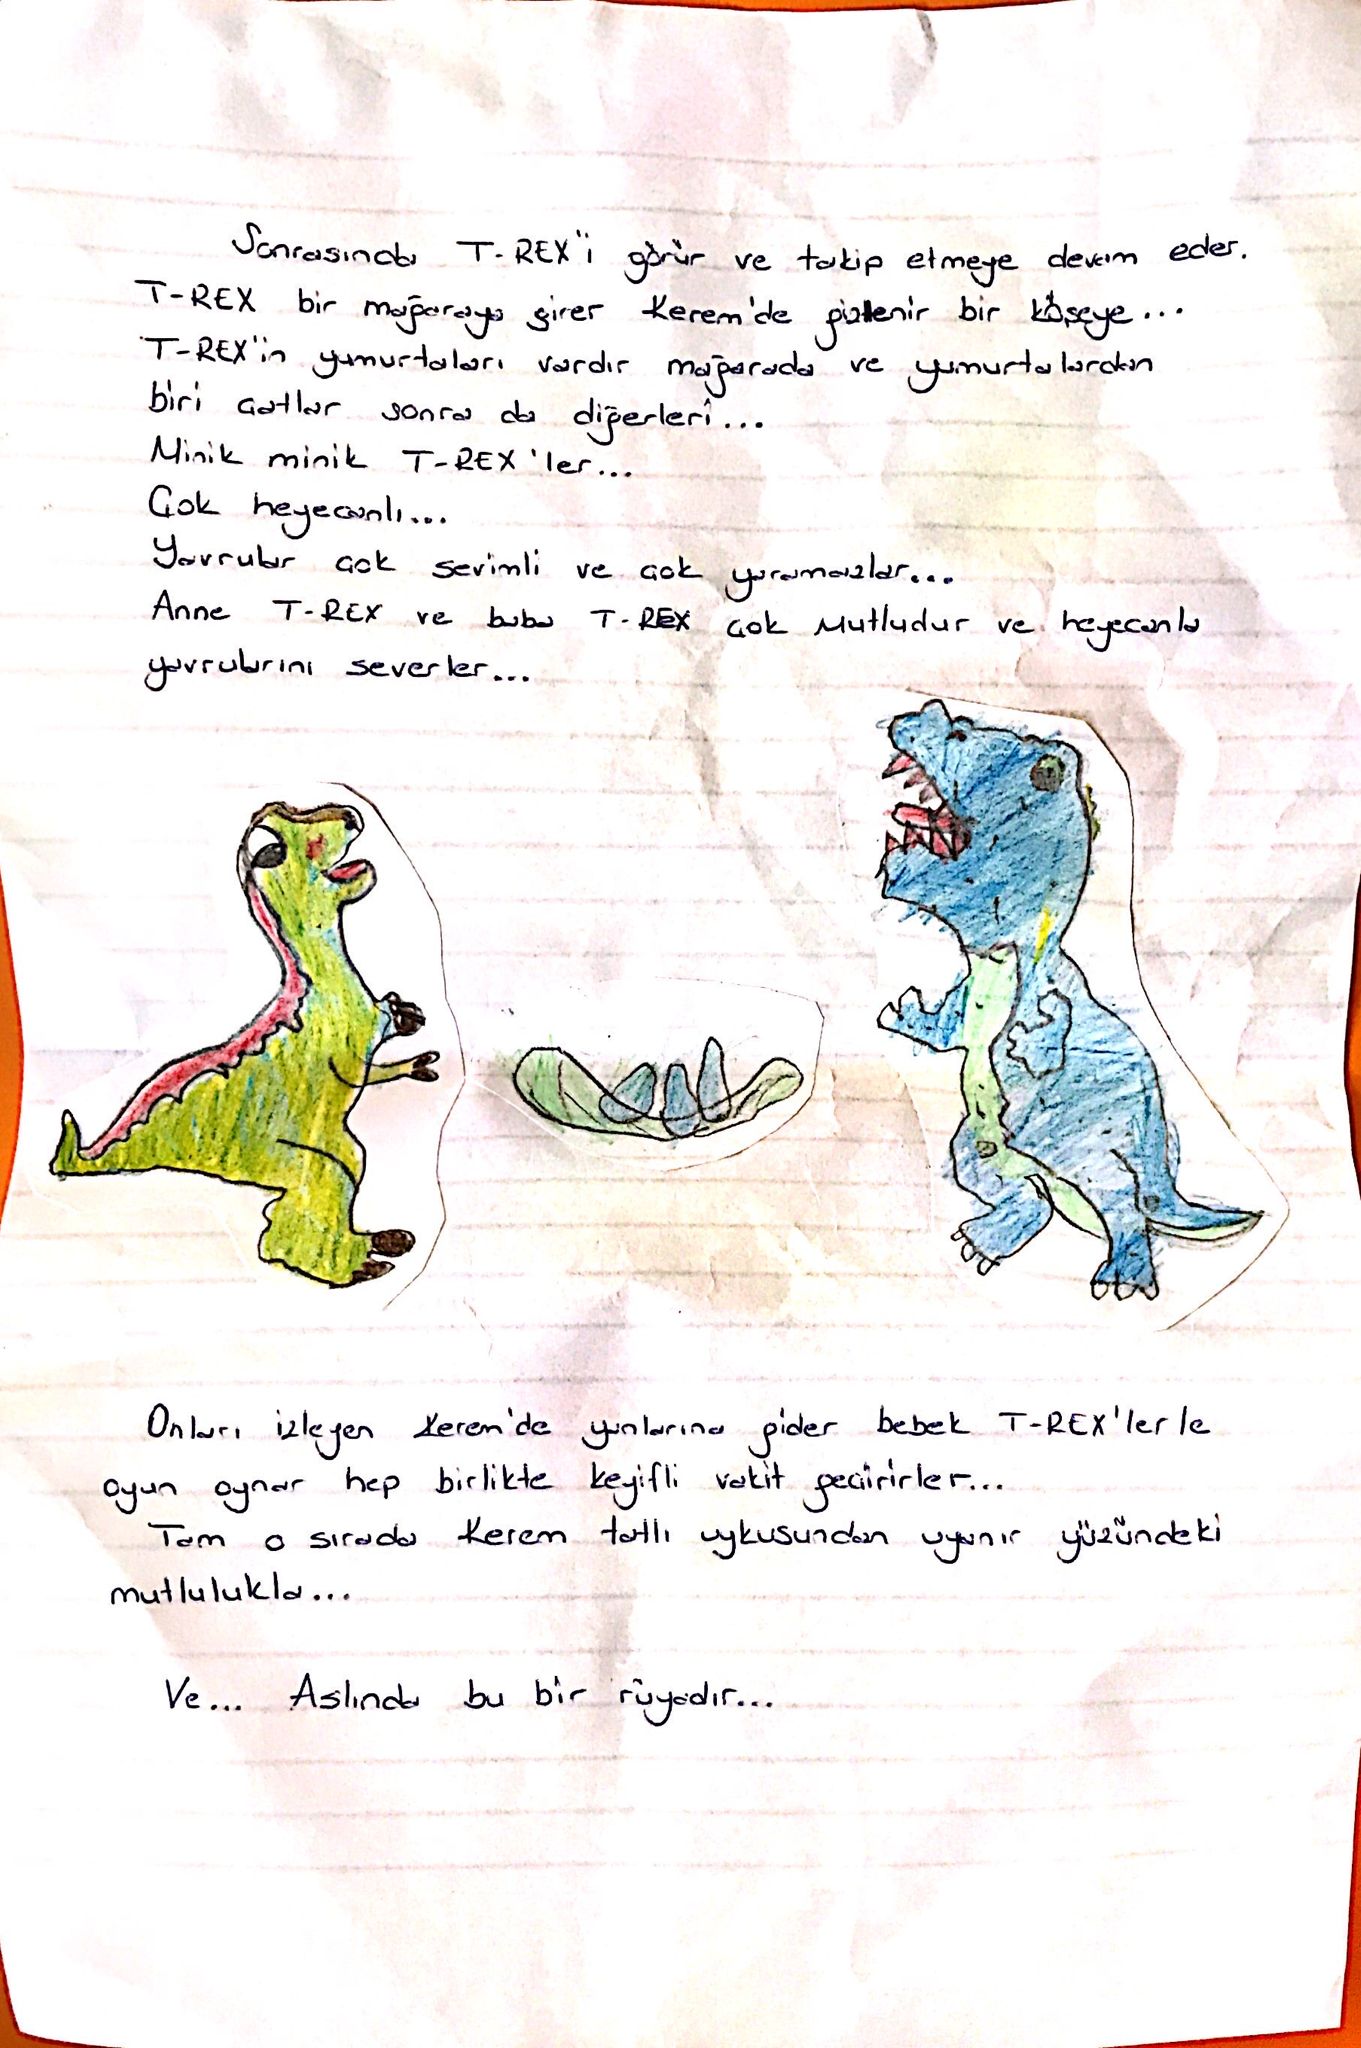 Sonrasında T-REX'i görür ve takip etmeye devam eder.
T-REX bir mağaraya girer Kerem'de gizlenir bir köşeye...
T-REX'in yumurtaları vardır mağarada ve yumurtalardan
biri çatlar sonra da diğerleri...
Minik minik T-REX'ler...
Çok heyecanlı...
Yavrular çok sevimli ve çok yaramazlar...
Anne T-REX ve baba T-REX çok Mutludur ve heyecanla
yavrularını severler...
Onları izleyen Kerem'de yanlarına gider bebek T-REX'lerle
oyun oynar hep birlikte keyifli vakit geçirirler...
Tam o sırada Kerem tatlı uykusundan uyanır yüzündeki
mutlulukla...
Ve... Aslında bu bir rüyadır...